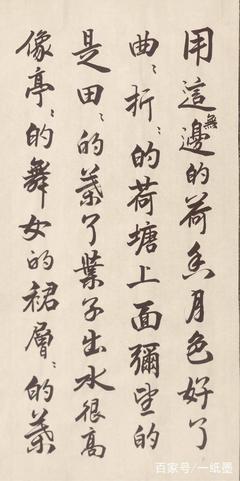 用這無邊的荷香月色好了
曲〻折〻的荷塘上面彌望的
是田〻的葉了葉子出水很高
像亭〻的舞女的裙層〻的葉
百家号/一纸墨